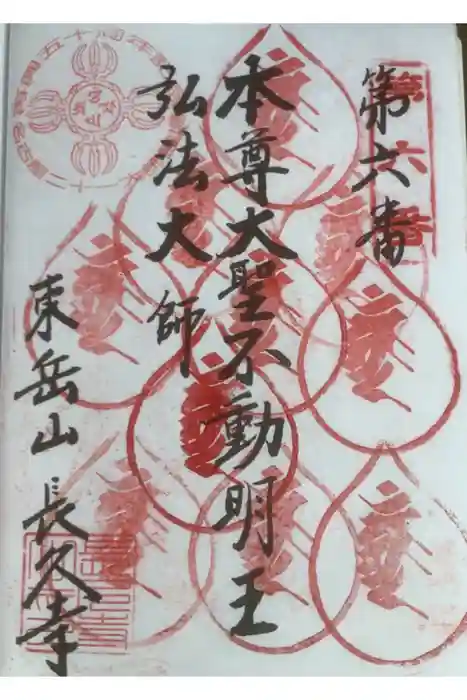 第六番
本尊大聖不動明王
弘法大師
東岳山 長久寺
第六番